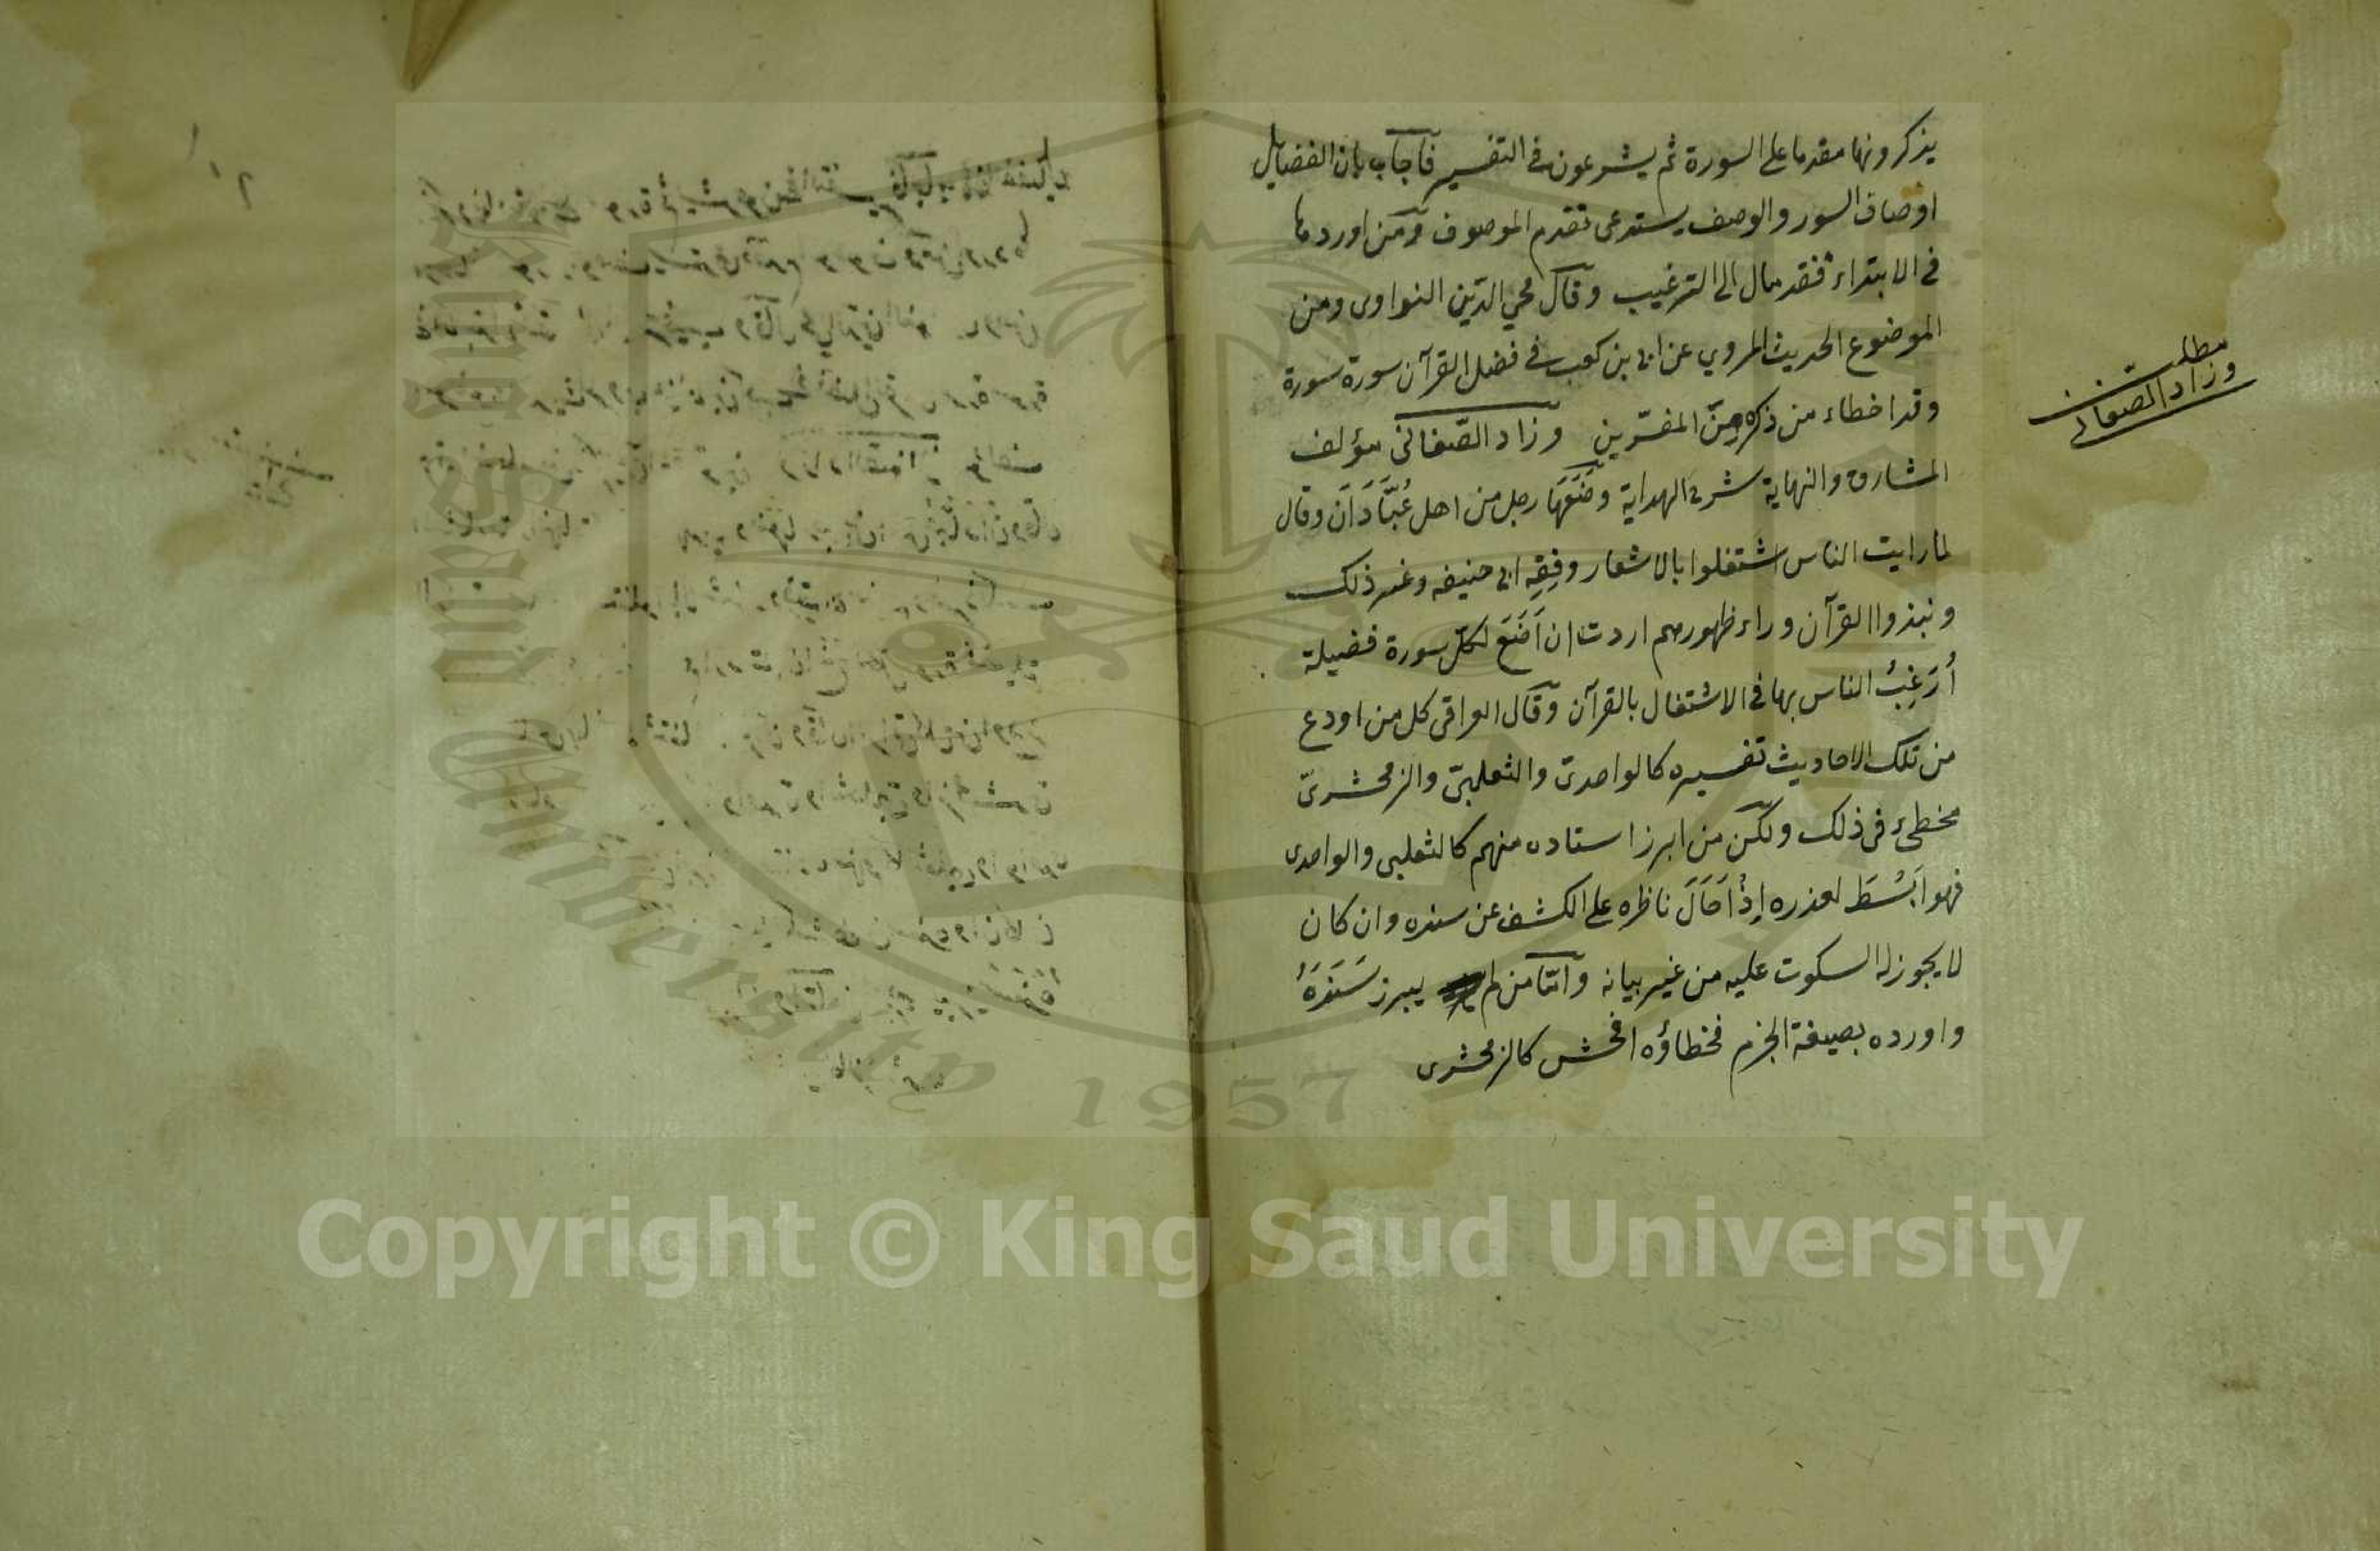 يذكرونها مقدما على السورة ثم يشرعون في التفسير فآجاب بان الفضايل
اوصاف السور والوصف يستدعى تقدم الموصوف ومن اوردها
في الابتداء فقد مال الى الترغيب وقال محي الدّين النواوى ومن
الموضوع الحديث المروي عن ابى بن كعب في فضل القرآن سورة سورة
وقد اخطاء من ذكره من المفسّرين وزاد الصّغانى مؤلف
المشارق والنهاية شرح الهداية وضَعَهَا رجل من اهل عُبَّادَان وقال
لما رايت الناس اشتغلوا بالاشعار وفِقِه ابى حنيفه وغير ذلك
ونبذوا القرآن وراء ظهورهم اردت ان اَضَعَ لكلّ سورة فضيلة
أُرَغِبُ الناس بها في الاشتغال بالقرآن وقال العراقى كل من اودع
من تلك الاحاديث تفسيره كالواحدىّ والثعلبىّ والزمخشرىّ
مخطىء فى ذلك ولكن من ابرز استاده منهم كالثعلبى والواحدى
فهو اَبْسَط لعذره إذْ اَحَالَ ناظره على الكشف عن سنده وان كان
لا يجوز له السكوت عليه من غير بيانه وآمّا من لم يبرز سَنَدَهُ
واورده بصيغة الجزم فخطاؤه افحش كالزمخشرى
مطلب
وزاد الصغانى
King Saud University
1957
Copyright © King Saud University